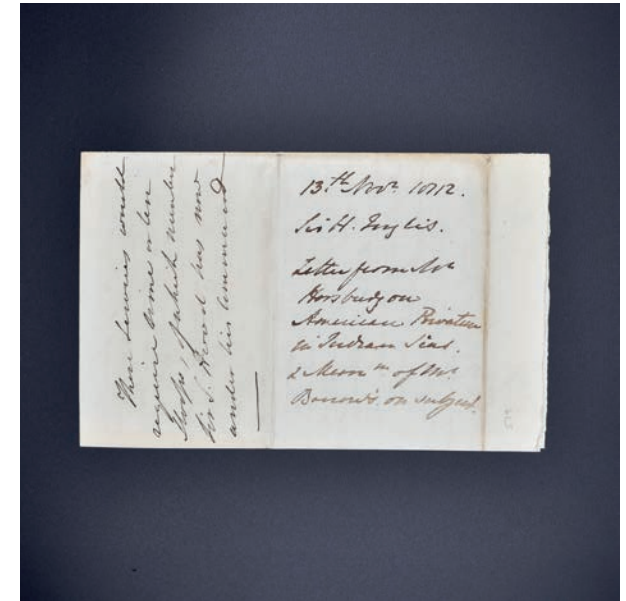 These Services would
require nine or ten
Sloops, of which number
Sir S. Hood has now
under his command
13.th Novr. 1812.
Sir H. Inglis.
Letter from Mr
Horsburg on
American Privateers
in Indian Seas.
& Memm of Mr
Barrow's on subject.